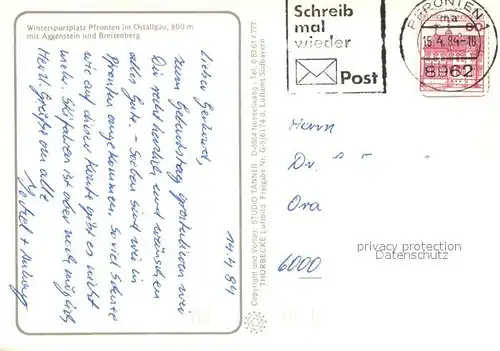 Wintersportplatz Pfronten im Ostallgäu, 800 m
mit Aggenstein und Breitenberg
14.4.84
Lieber Gerhard,
zum Geburtstag gratulieren wir
Dir recht herzlich und wünschen
alles Gute. - Soeben sind wir in
Pfronten angekommen. Soviel Schnee
wie auf dieser Karte gibt es nicht
mehr. Skifahren ist aber noch möglich
Herzl. Grüße von alle
Copyright und Verlag: STUDIO TANNER D-8964 Nesselwang - Tel. 0 83 61 / 777
THORBECKE Luftbild Freigabe Nr. G5/6174 d. Luftamt Südbayern
Schreib
mal
wieder
Post
PFRONTEN 1
ma
15.4.84-10
8962
Herrn
Dr.
Ora
6000
privacy protection
Datenschutz